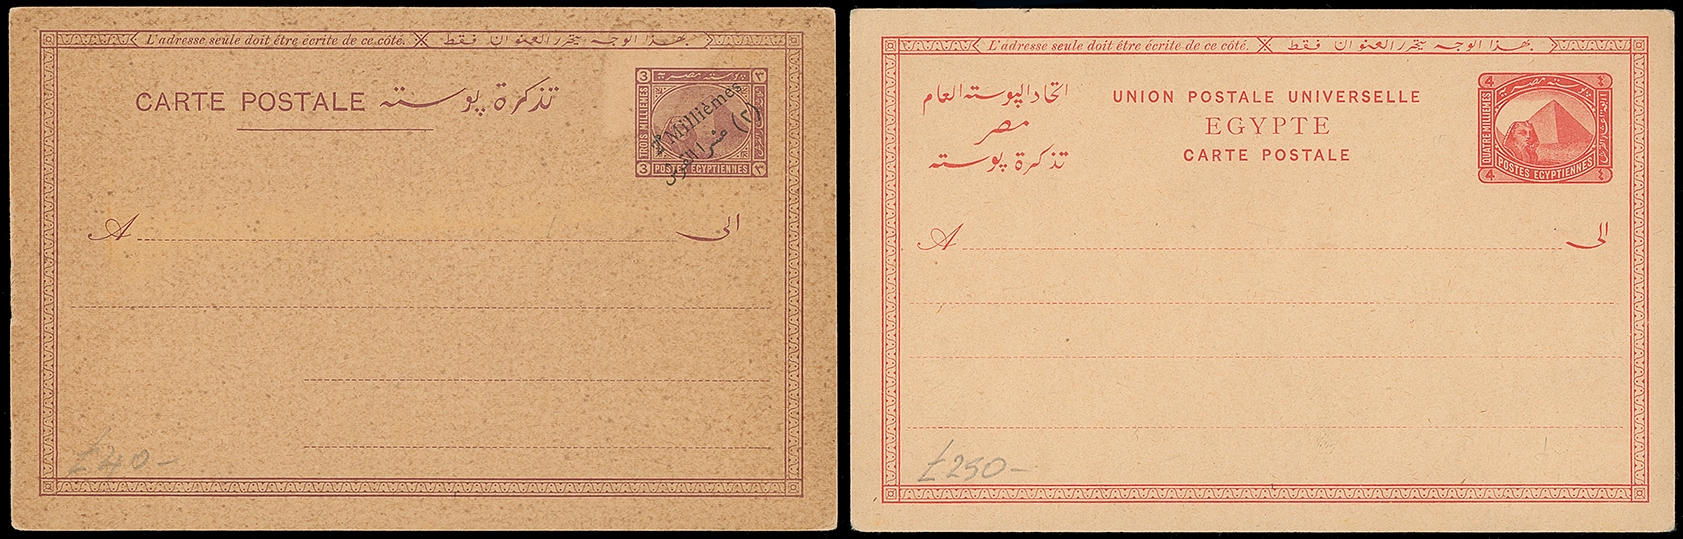 L'adresse seule doit être écrite de ce côté. بهذا الوجه يحرر العنوان فقط
CARTE POSTALE تذكرة پوسته
3 پوسته مصريه ٣
TROIS MILLIEMES
2 Millièmes
(٢) عشر القرش
3 POSTES EGYPTIENNES ٣
A الى
£40-
L'adresse seule doit être écrite de ce côté. بهذا الوجه يحرر العنوان فقط
اتحاد الپوسته العام UNION POSTALE UNIVERSELLE
مصر EGYPTE
تذكرة پوسته CARTE POSTALE
4 پوسته مصريه ٤
QUATRE MILLIEMES
4 POSTES EGYPTIENNES ٤
A الى
£250-